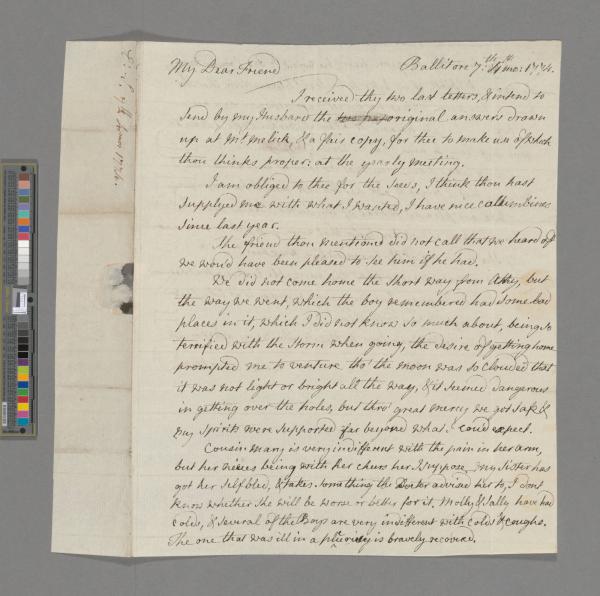 My Dear Friend Ballitore 7th 4th mo: 1774.
I received thy two last letters, & intend to
send by my Husband the original answers drawn
up at Mt melick, & a fair copy, for thee to make use of which
thou thinks proper: at the yearly meeting.
I am obliged to thee for the seeds, I think thou hast
supplyed me with what I wanted, I have nice columbines
since last year.
The friend thou mentiond did not call that we heard of
we would have been pleased to see him if he had.
We did not come home the short way from Athy, but
the way we went, which the boy remembered had some bad
places in it, which I did not know so much about, being so
terrified with the storm when going, the desire of getting home
prompted me to venture tho' the moon was so clouded that
it was not light or bright all the way, & it seemed dangerous
in getting over the holes, but thro' great mercy we got safe &
my spirits were supported far beyond what I coud expect.
Cousin Mary is very indifferent with the pain in her arm,
but her nieces being with her chears her I suppose, my sister has
got her self bled, & takes something the Doctor advised her to, I dont
know whether she will be worse or better for it, Molly & Sally have had
colds, & several of the Boys are very indifferent with colds & coughs.
The one that was ill in a pleurisy is bravely recoverd.